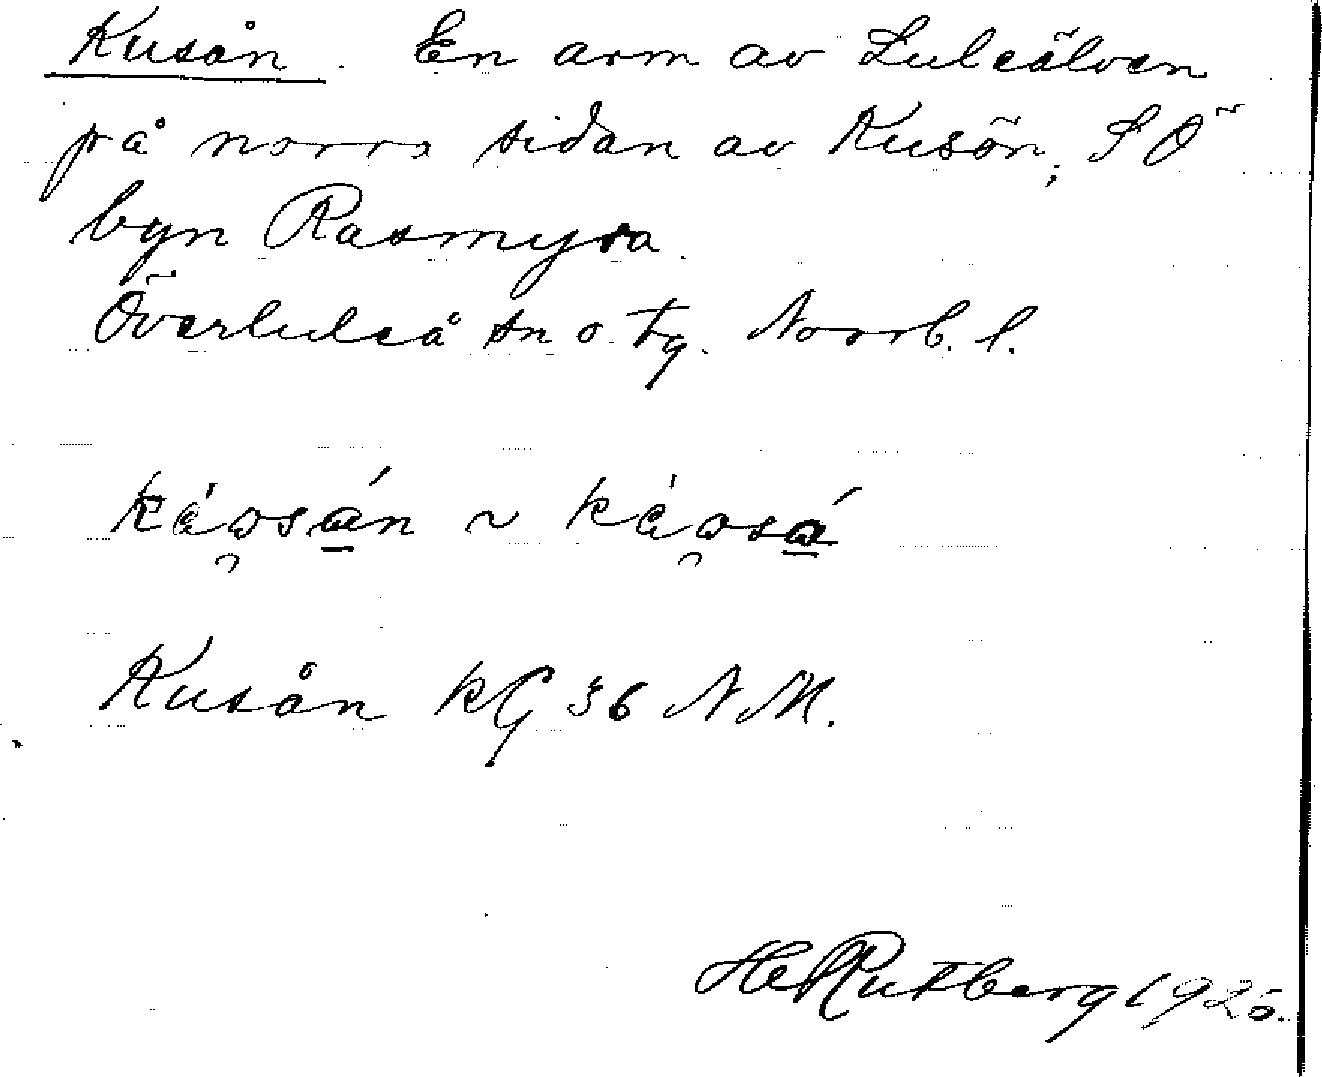 Kusån. En arm av Luleälven
på norra sidan av Kusön, SÖ
byn Rasmyra.
Överluleå sn o. tg. Norrb. l.
Kusån kG 36 NM.
HelRutberg 1925.